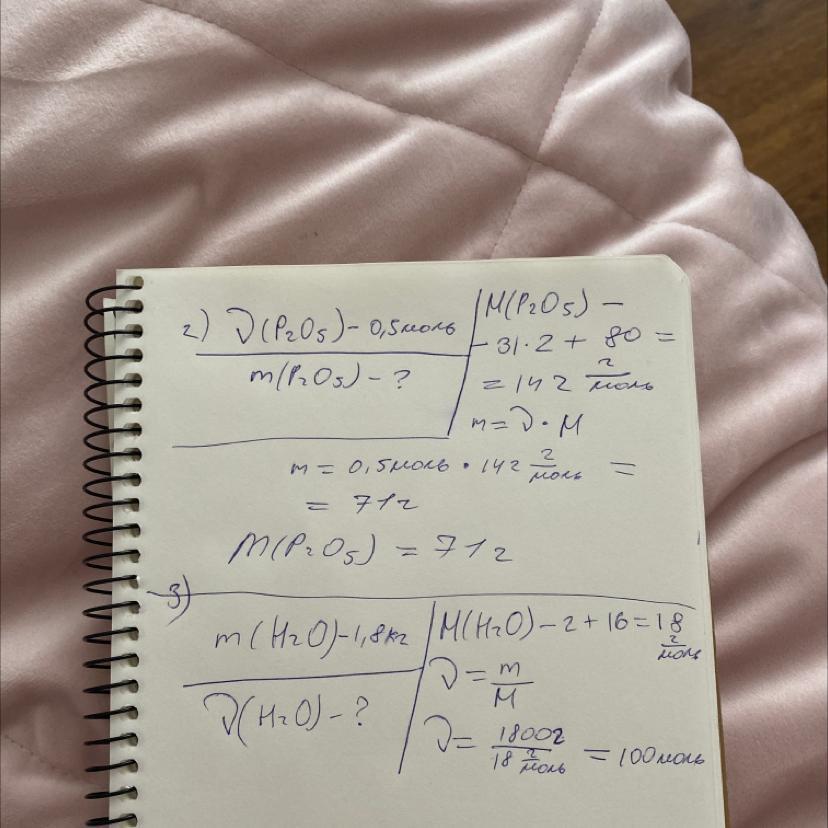 2) ν(P₂O₅) – 0,5 моль
m(P₂O₅) – ?
M(P₂O₅) –
– 31·2 + 80 =
= 142 г/моль
m = ν · M
m = 0,5 моль · 142 г/моль =
= 71 г
M(P₂O₅) = 71 г
3)
m(H₂O) – 1,8 кг
ν(H₂O) – ?
M(H₂O) – 2 + 16 = 18 г/моль
ν = m/M
ν = 1800г / 18 г/моль = 100 моль